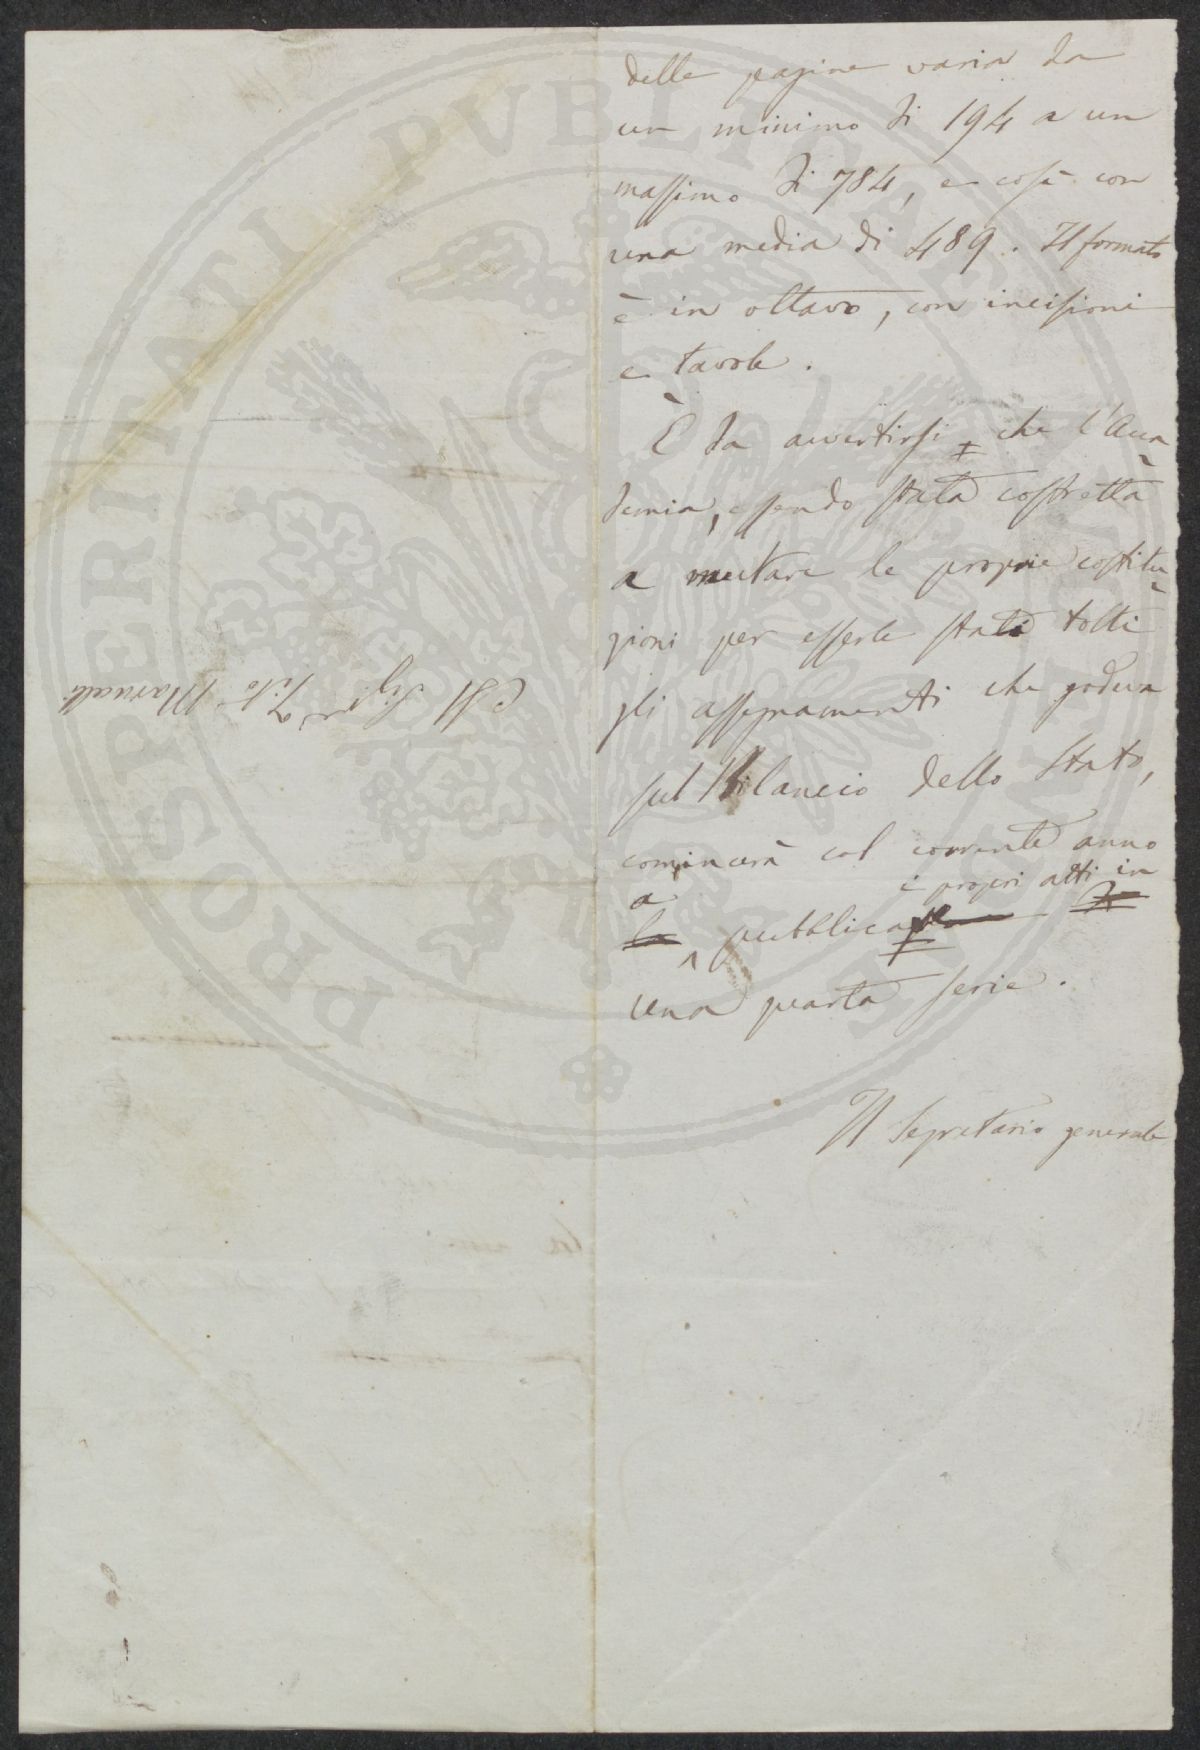 delle pagine varia da
un minimo di 194 a un
massimo di 784, e così con
una media di 489. Il formato
è in ottavo, con incisioni
e tavole.
È da avvertirsi, che l'Acca=
demia, essendo stata costretta
a mutare le proprie costitu=
zioni per esserle stati tolti
gli assegnamenti che godeva
sul Bilancio dello Stato,
comincerà col corrente anno
a pubblicare i propri atti in
una quarta serie.
Il Segretario generale
Al Sigr Tito
PROSPERITATI PVBLICAE AVGENDAE